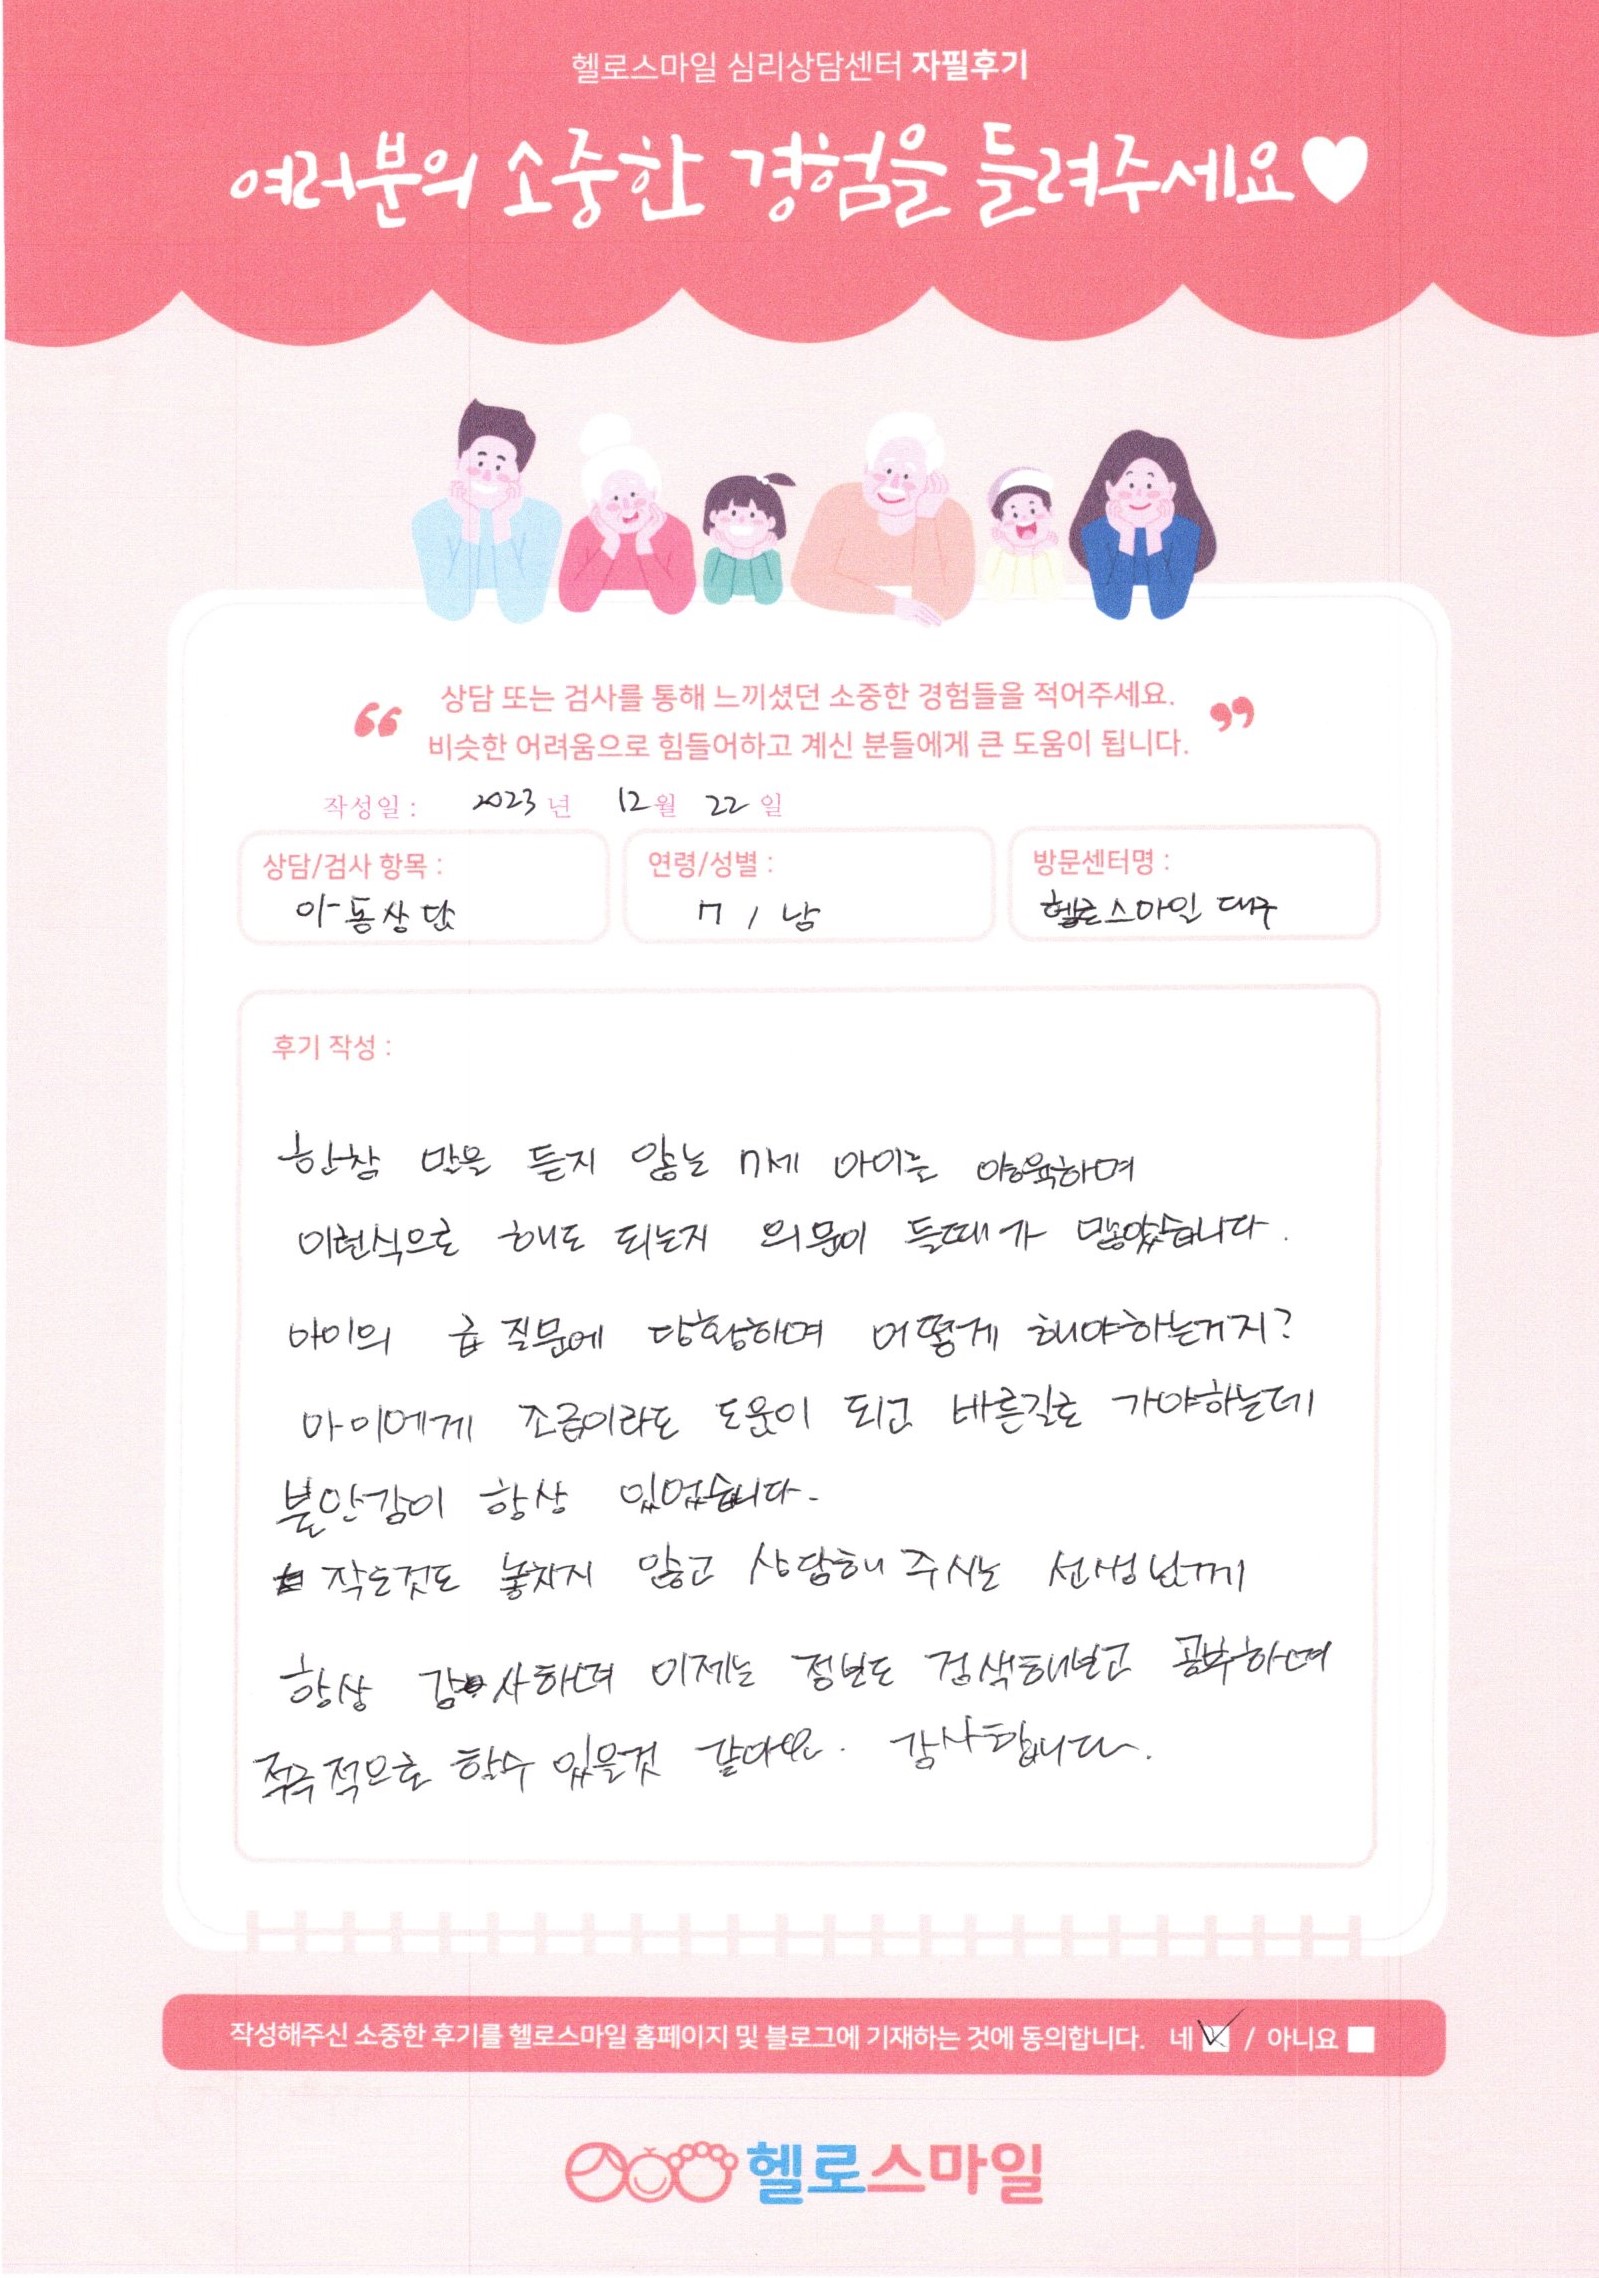 헬로스마일 심리상담센터 자필후기
여러분의 소중한 경험을 들려주세요♥
“ 상담 또는 검사를 통해 느끼셨던 소중한 경험들을 적어주세요.
비슷한 어려움으로 힘들어하고 계신 분들에게 큰 도움이 됩니다. ”
작성일 : 2023 년 12 월 22 일
상담/검사 항목 :
아동상담
연령/성별 :
7 / 남
방문센터명 :
헬로스마일 대구
후기 작성 :
한참 말을 듣지 않는 7세 아이를 양육하며
이런식으로 해도 되는지 의문이 들때가 많았습니다.
아이의 급 질문에 당황하며 어떻게 해야하는거지?
아이에게 조금이라도 도움이 되고 바른길로 가야하는데
불안감이 항상 있었습니다.
작은것도 놓치지 않고 상담해 주시는 선생님께
항상 감사하며 이제는 정보도 검색해보고 공부하며
적극적으로 할수 있을것 같아요. 감사합니다.
작성해주신 소중한 후기를 헬로스마일 홈페이지 및 블로그에 기재하는 것에 동의합니다. 네 ☑ / 아니요 □
헬로스마일